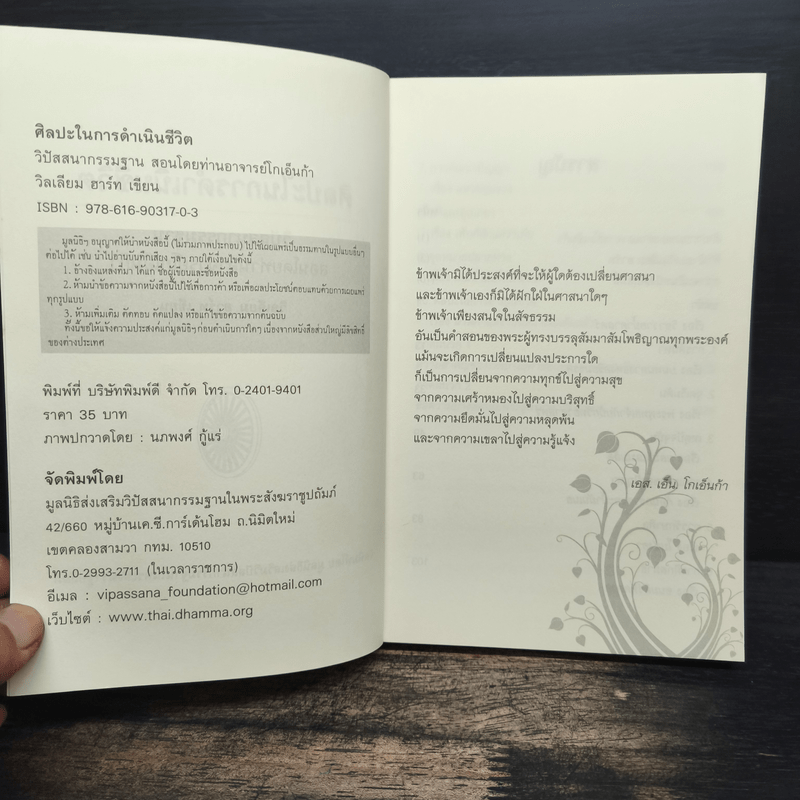 ศิลปะในการดำเนินชีวิต
วิปัสสนากรรมฐาน สอนโดยท่านอาจารย์โกเอ็นก้า
วิลเลียม ฮาร์ท เขียน
ISBN : 978-616-90317-0-3
มูลนิธิฯ อนุญาตให้นำหนังสือนี้ (ไม่รวมภาพประกอบ) ไปใช้เผยแพร่เป็นธรรมทานในรูปแบบอื่นๆ
ต่อไปได้ เช่น นำไปอ่านบันทึกเสียง ฯลฯ ภายใต้เงื่อนไขดังนี้
1. อ้างอิงแหล่งที่มา ได้แก่ ชื่อผู้เขียนและชื่อหนังสือ
2. ห้ามนำข้อความจากหนังสือนี้ไปใช้เพื่อการค้า หรือเพื่อผลประโยชน์ตอบแทนด้วยการเผยแพร่
ทุกรูปแบบ
3. ห้ามเพิ่มเติม ตัดทอน ดัดแปลง หรือแก้ไขข้อความจากต้นฉบับ
ทั้งนี้ขอให้แจ้งความประสงค์แก่มูลนิธิฯ ก่อนดำเนินการใดๆ เนื่องจากหนังสือส่วนใหญ่มีลิขสิทธิ์
ของต่างประเทศ
พิมพ์ที่ บริษัทพิมพ์ดี จำกัด โทร. 0-2401-9401
ราคา 35 บาท
ภาพปกวาดโดย : นภพงศ์ กู้แร่
จัดพิมพ์โดย
มูลนิธิส่งเสริมวิปัสสนากรรมฐานในพระสังฆราชูปถัมภ์
42/660 หมู่บ้านเค.ซี.การ์เด้นโฮม ถ.นิมิตใหม่
เขตคลองสามวา กทม. 10510
โทร.0-2993-2711 (ในเวลาราชการ)
อีเมล : vipassana_foundation@hotmail.com
เว็บไซต์ : www.thai.dhamma.org
ข้าพเจ้ามิได้ประสงค์ที่จะให้ผู้ใดต้องเปลี่ยนศาสนา
และข้าพเจ้าเองก็มิได้ฝักใฝ่ในศาสนาใดๆ
ข้าพเจ้าเพียงสนใจในสัจธรรม
อันเป็นคำสอนของพระผู้ทรงบรรลุสัมมาสัมโพธิญาณทุกพระองค์
แม้นจะเกิดการเปลี่ยนแปลงประการใด
ก็เป็นการเปลี่ยนจากความทุกข์ไปสู่ความสุข
จากความเศร้าหมองไปสู่ความบริสุทธิ์
จากความยึดมั่นไปสู่ความหลุดพ้น
และจากความเขลาไปสู่ความรู้แจ้ง
เอส. เอ็น. โกเอ็นก้า